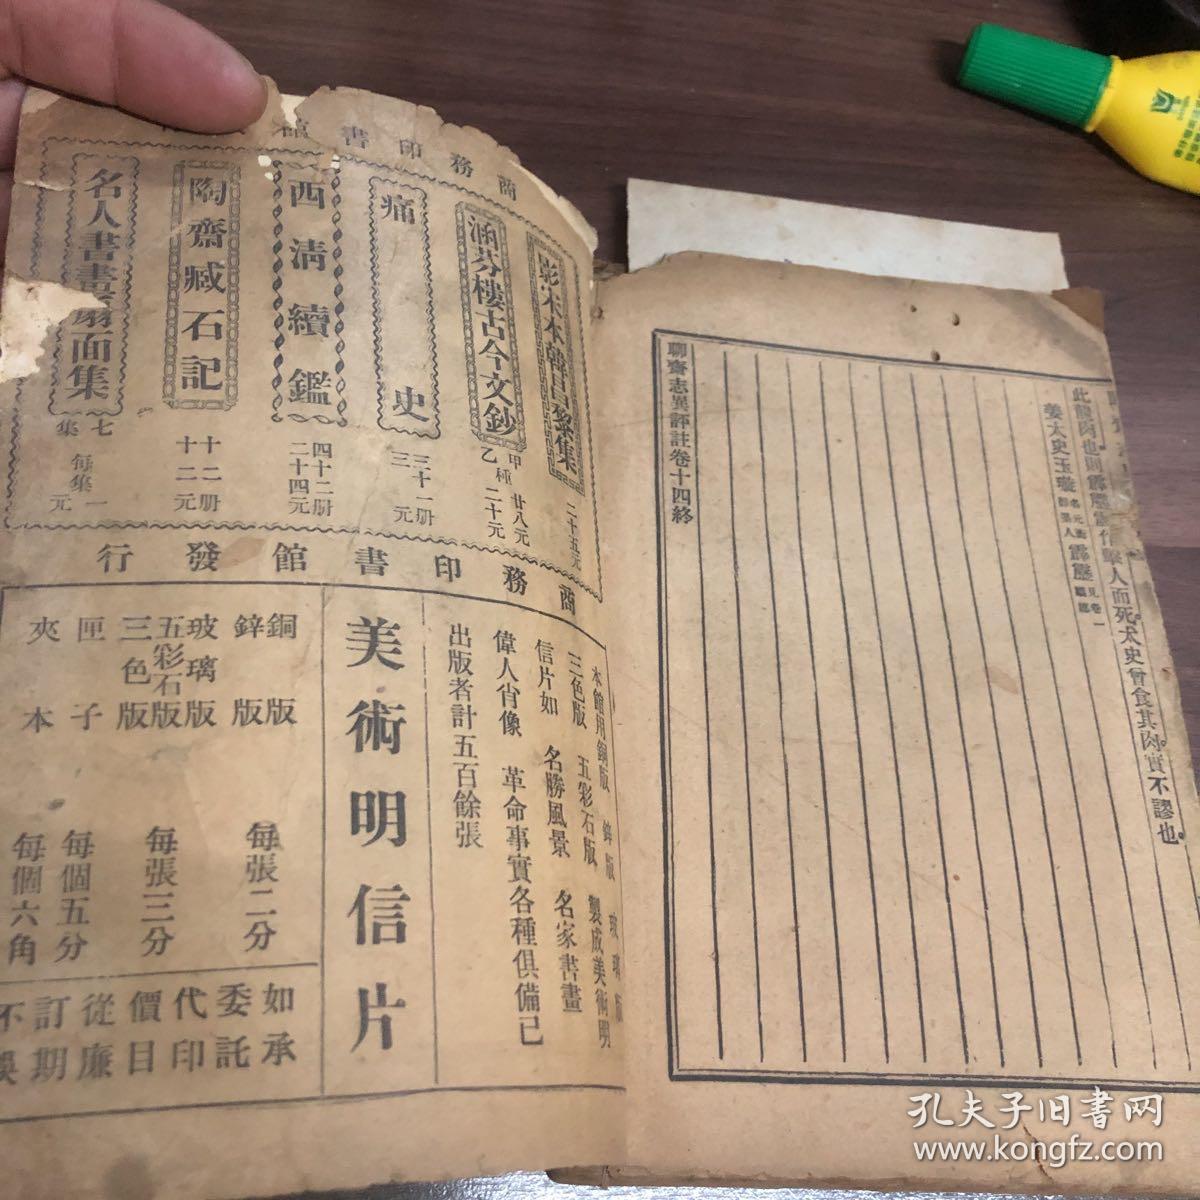 此龍肉也則霹靂震作擊人而死太史曾食其肉實不謬也
姜太史玉璇
霹靂
見卷一
聊齋志異評註卷十四終
商務印書館
影宋本韓昌黎集
二十五元
涵芬樓古今文鈔
甲種 廿八元
乙種 二十元
痛史
三十一册
三元
西清續鑑
四十二册
二十四元
陶齋臧石記
十二册
十二元
名人書畫扇面集
七集
每集一元
商務印書館發行
本館用銅版 鋅版 玻璃版
三色版 五彩石版 製成美術明
信片如 名勝風景 名家書畫
偉人肖像 革命事實各種俱備已
出版者計五百餘張
美術明信片
銅版
鋅版
每張二分
玻璃版
五彩石版
三色版
每張三分
匣子
每個五分
夾本
每個六角
如承
委託
代印
價目
從廉
訂期
不誤
孔夫子旧書网
www.kongfz.com